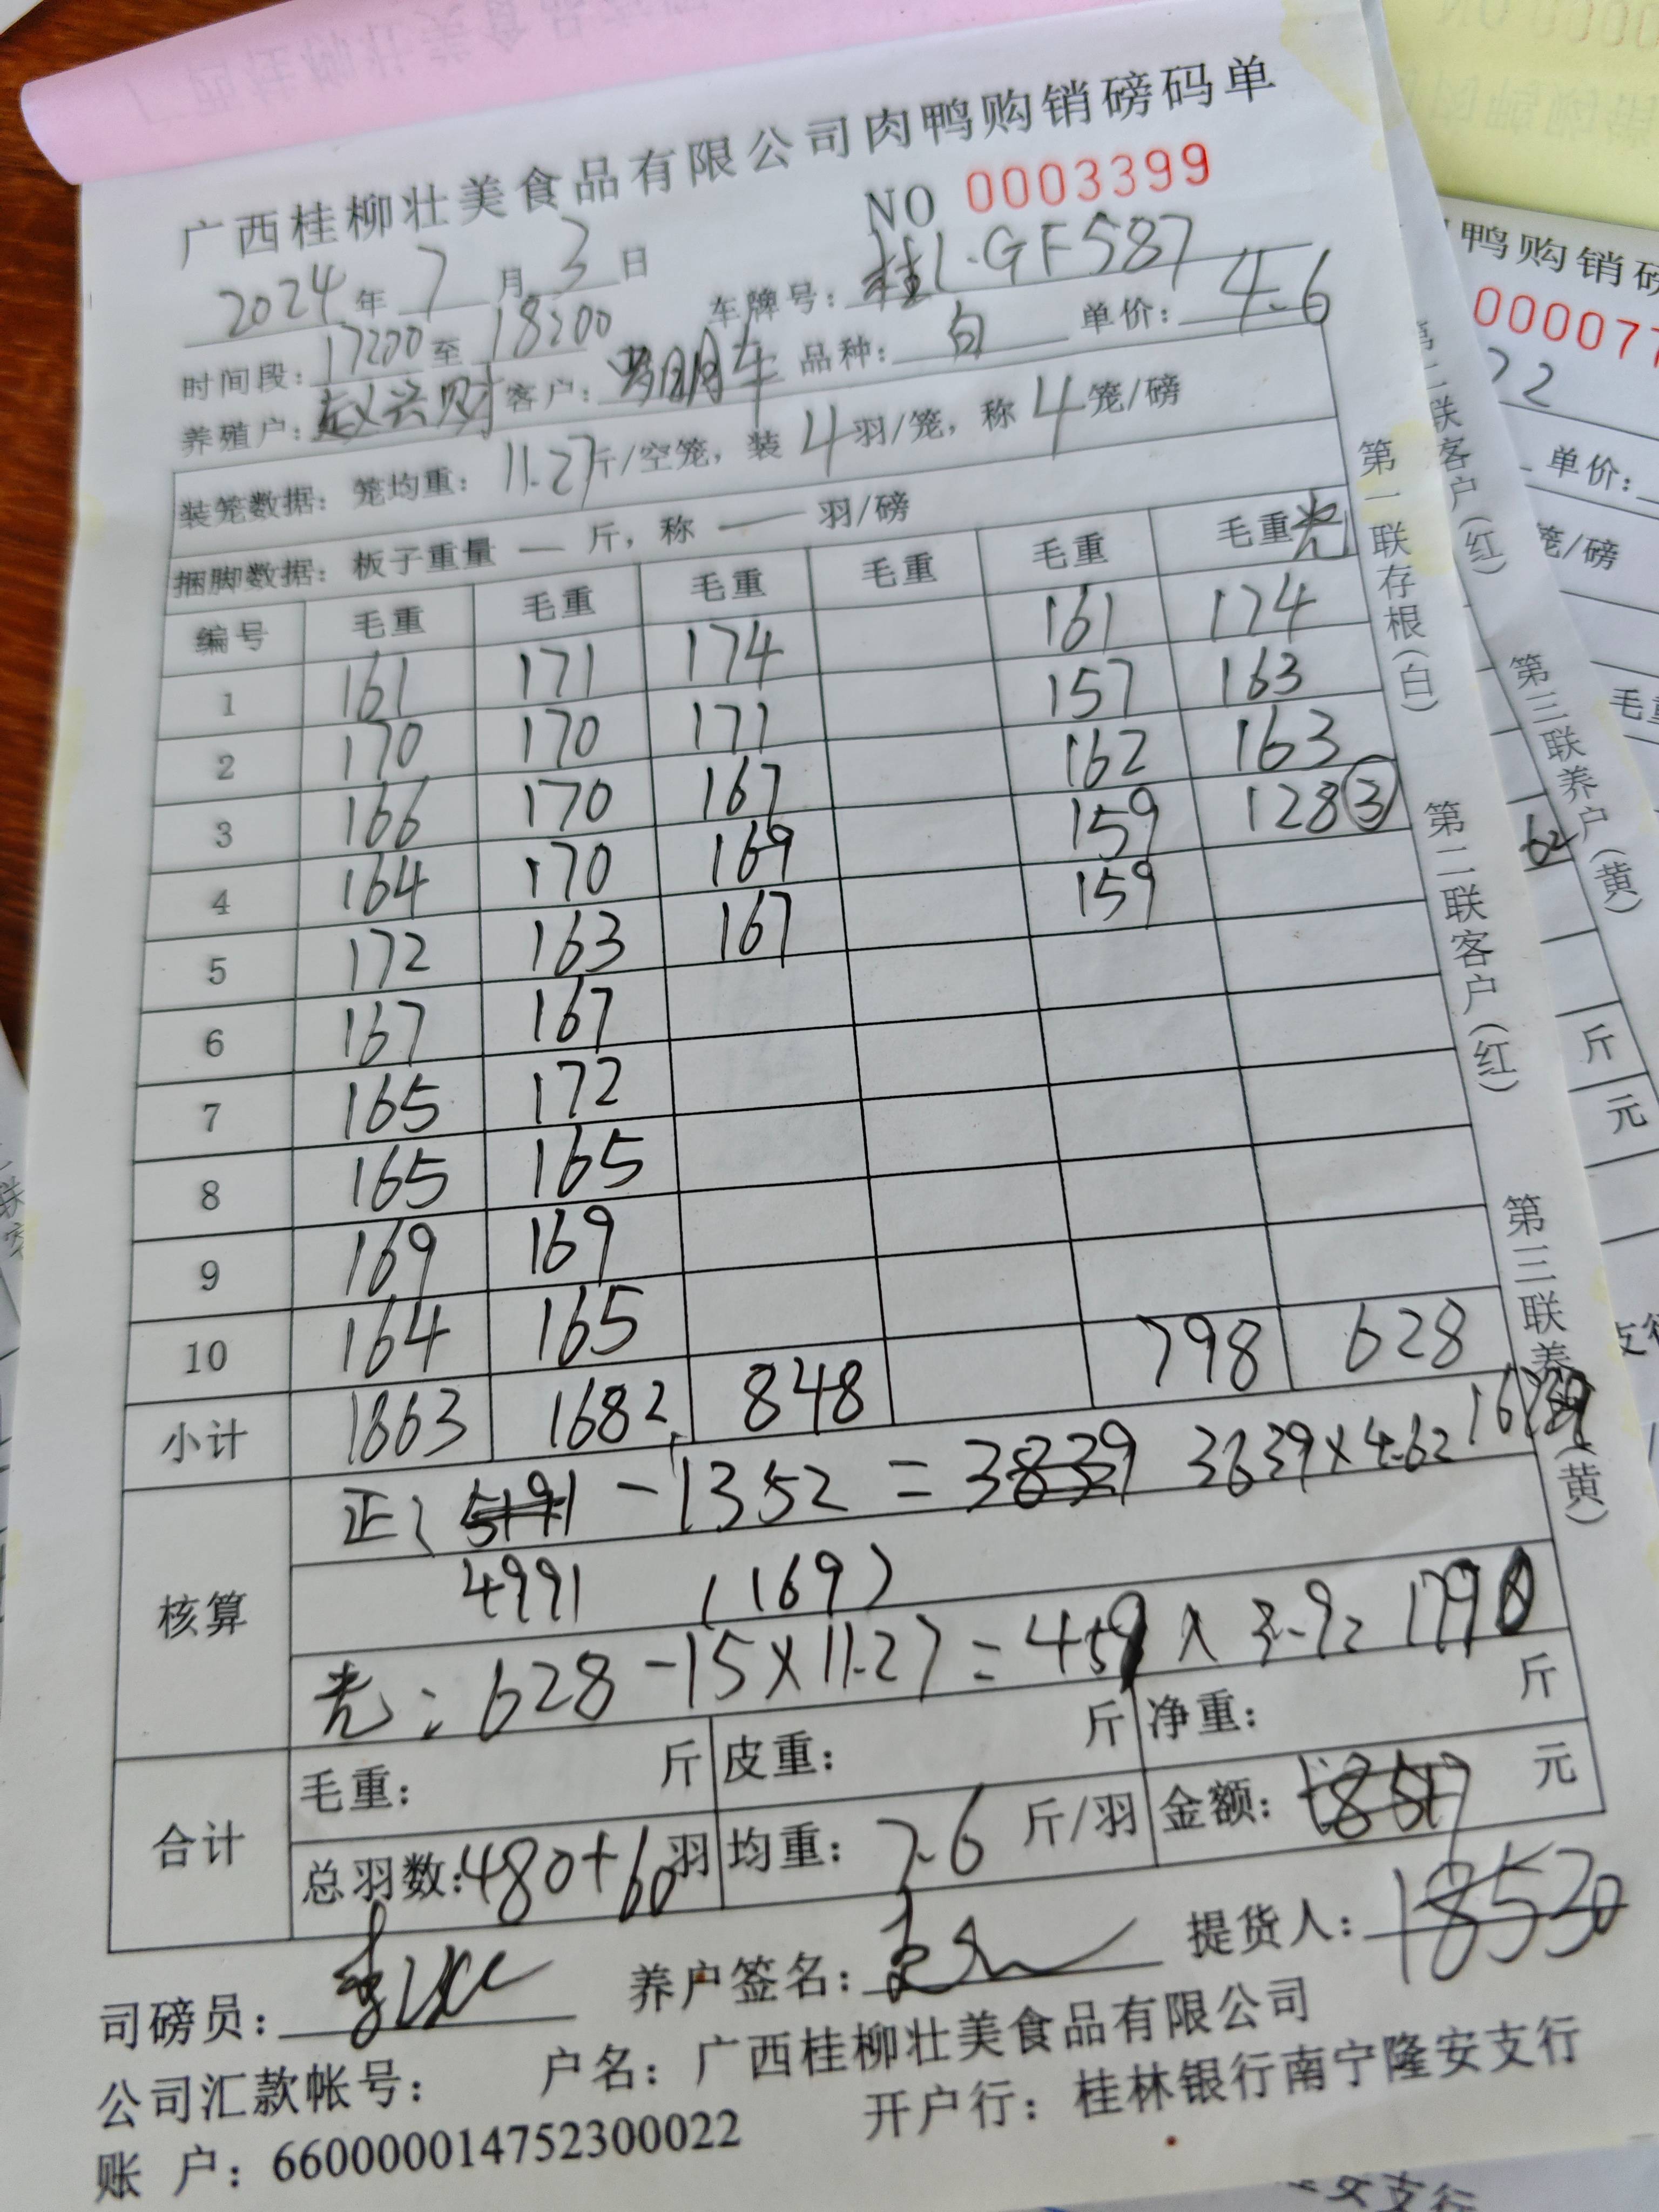 广西桂柳壮美食品有限公司肉鸭购销磅码单
NO 0003399
2024年 7月 3日 车牌号：桂L·GF587
时间段：17:00至18:00 品种：白 单价：4.6
养殖户：赵兴财 客户：
装笼数据：笼均重：11.27斤/空笼，装4羽/笼，称4笼/磅
捆脚数据：板子重量 — 斤，称 — 羽/磅
编号 毛重 毛重 毛重 毛重 毛重 毛重光
1 161 171 174 161 174
2 170 170 171 157 163
3 166 170 167 162 163
4 164 170 169 159 128③
5 172 163 167 159
6 167 167
7 165 172
8 165 165
9 169 169
10 164 165
小计 1663 1682 848 798 628
核算
正：5191 - 1352 = 3839 3639×4.6=
4991 (169)
光：628-15×11.27=459×3.9=1790
合计
毛重： 斤 皮重： 斤 净重： 斤
总羽数：480+60羽 均重：7.6斤/羽 金额：18517元
18530
司磅员： 养户签名： 提货人：
公司汇款帐号： 户名：广西桂柳壮美食品有限公司
账 户：660000014752300022 开户行：桂林银行南宁隆安支行
第一联存根（白） 第二联客户（红） 第三联养户（黄）
第二联客户（红） 第三联养户（黄）
鸭购销磅
00007
22
单价：
笼/磅
毛重
62
斤
元
支行